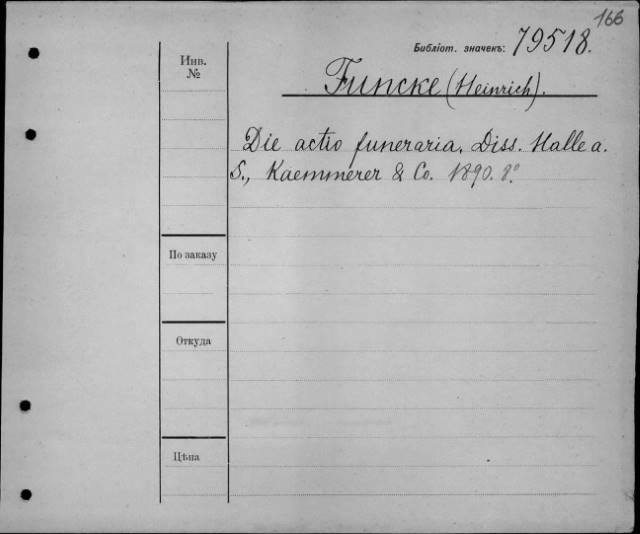 166
Библіот. значекъ: 79518.
Инв.
№
Funcke (Heinrich).
Die actio funeraria. Diss. Halle a.
S., Kaemmerer & Co. 1890. 8°
По заказу
Откуда
Цѣна